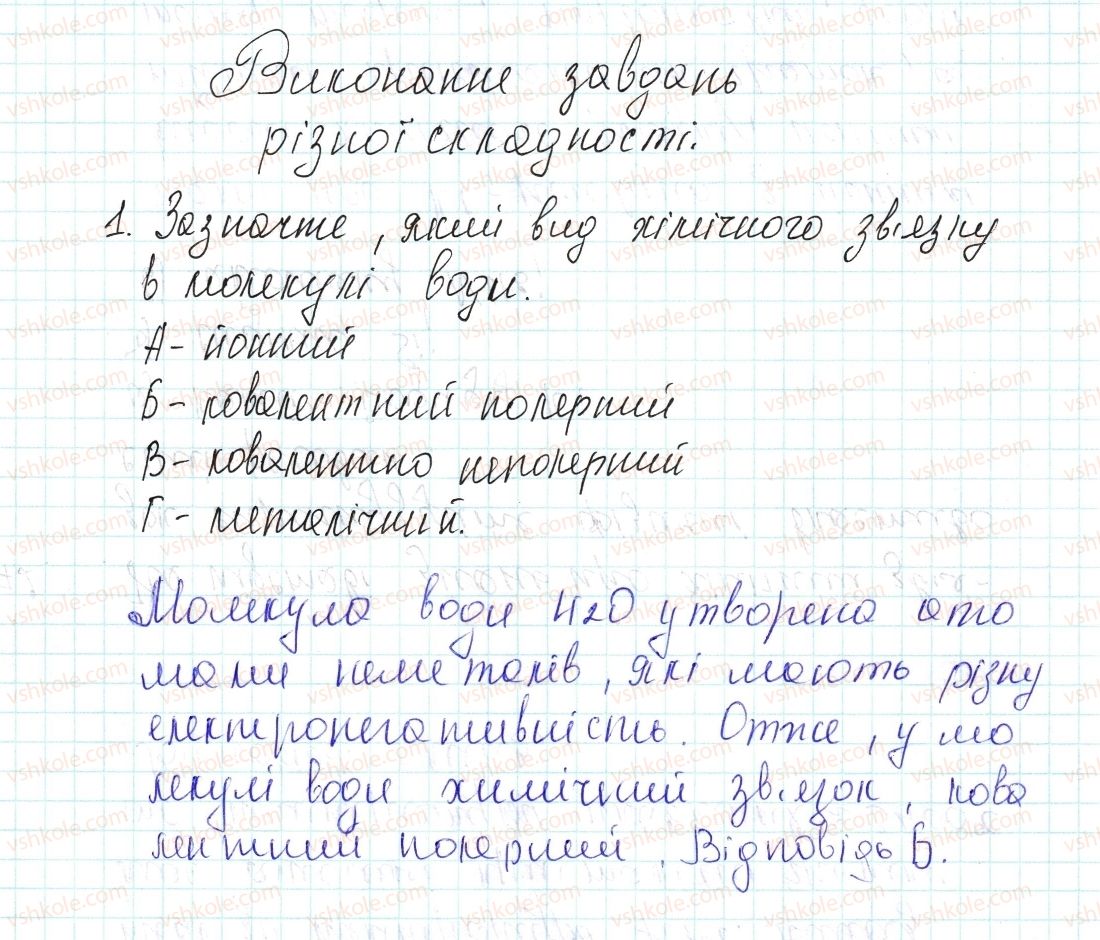 Виконание завдань
різної складності.
1. Зазначте, який вид хімічного зв'язку
в молекулі води.
А- йонний
Б- ковалентний полерний
В- ковалентно неполерний
Г- металічний.
Молекула води H2O утворена ато
мами неметалів, які мають різну
електронегативність. Отже, у мо
лекулі води химічний зв'язок, кова
лентний полерний. Відповідь Б.